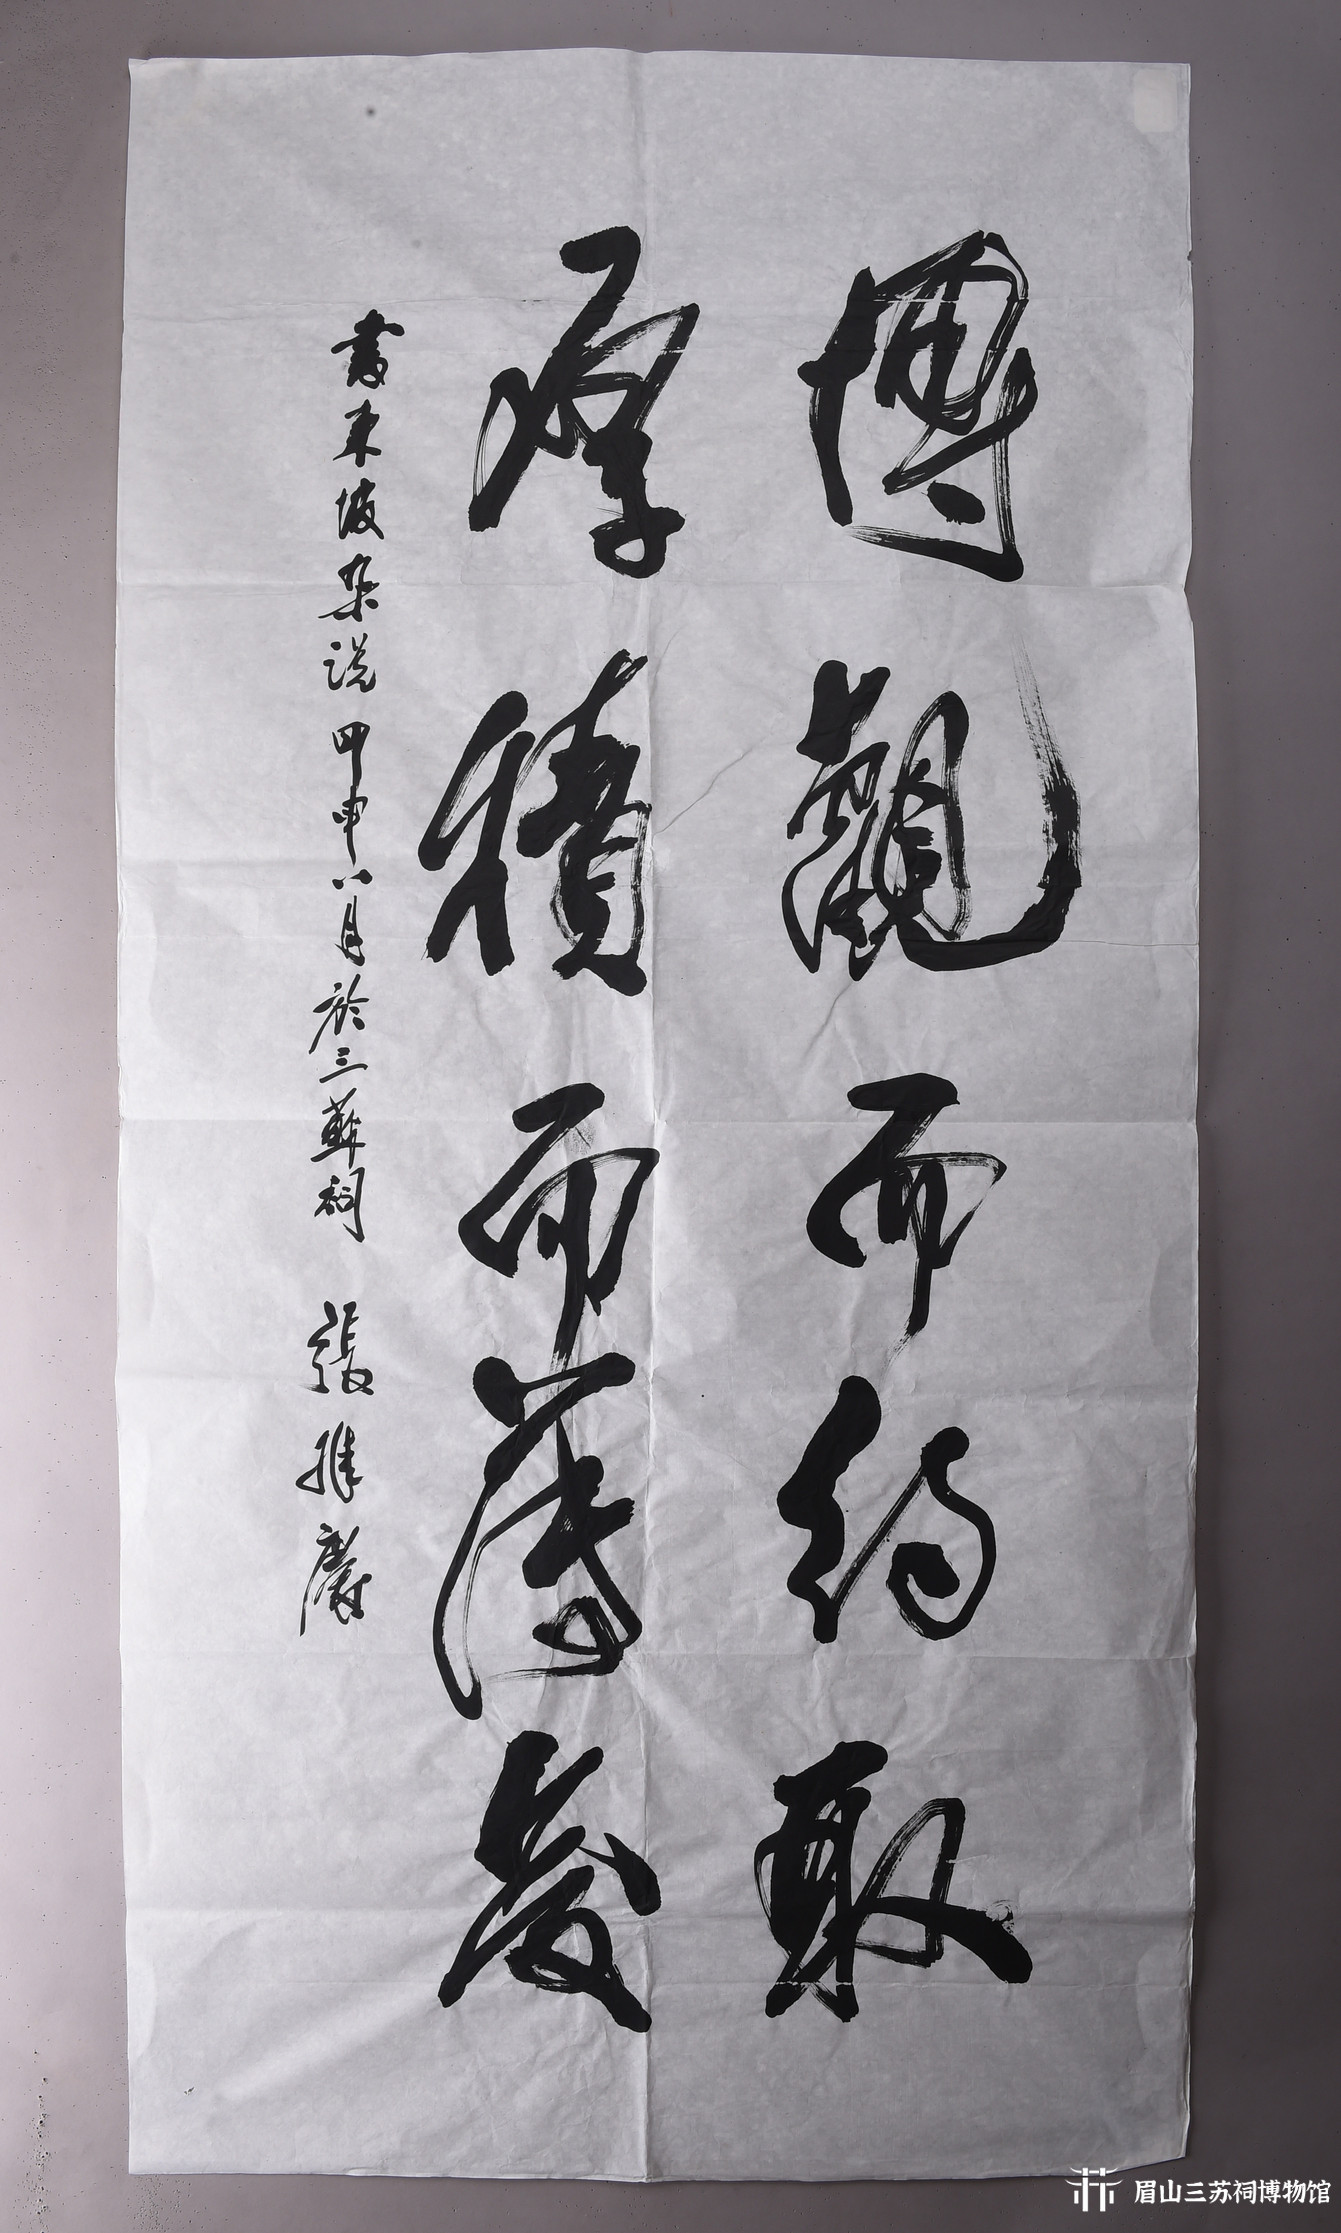 博觀而約取
厚積而薄發
書東坡杂說 甲申八月於三蘇祠 張維慶
眉山三苏祠博物馆